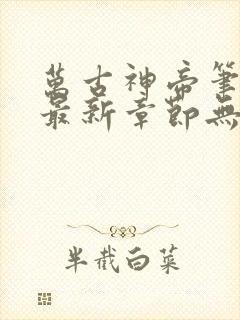 萬古神帝筆
最新章節無
半截白菜